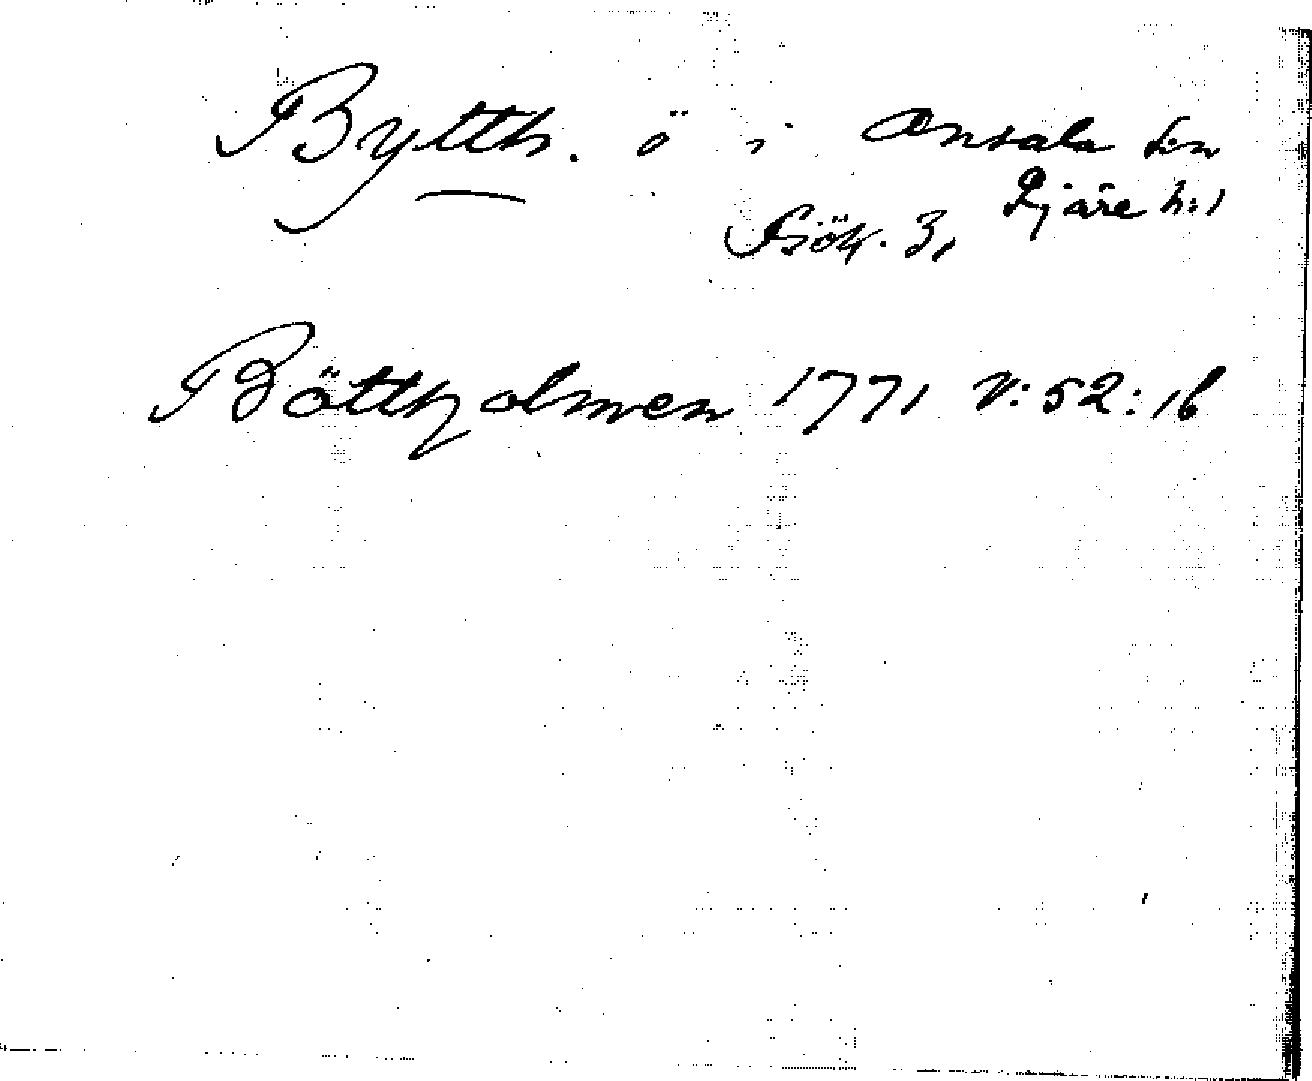 Bytth. ö i Onsala s:n
Fjäre h:d
Sjök. 3,
Böttholmen 1771 V:52:16